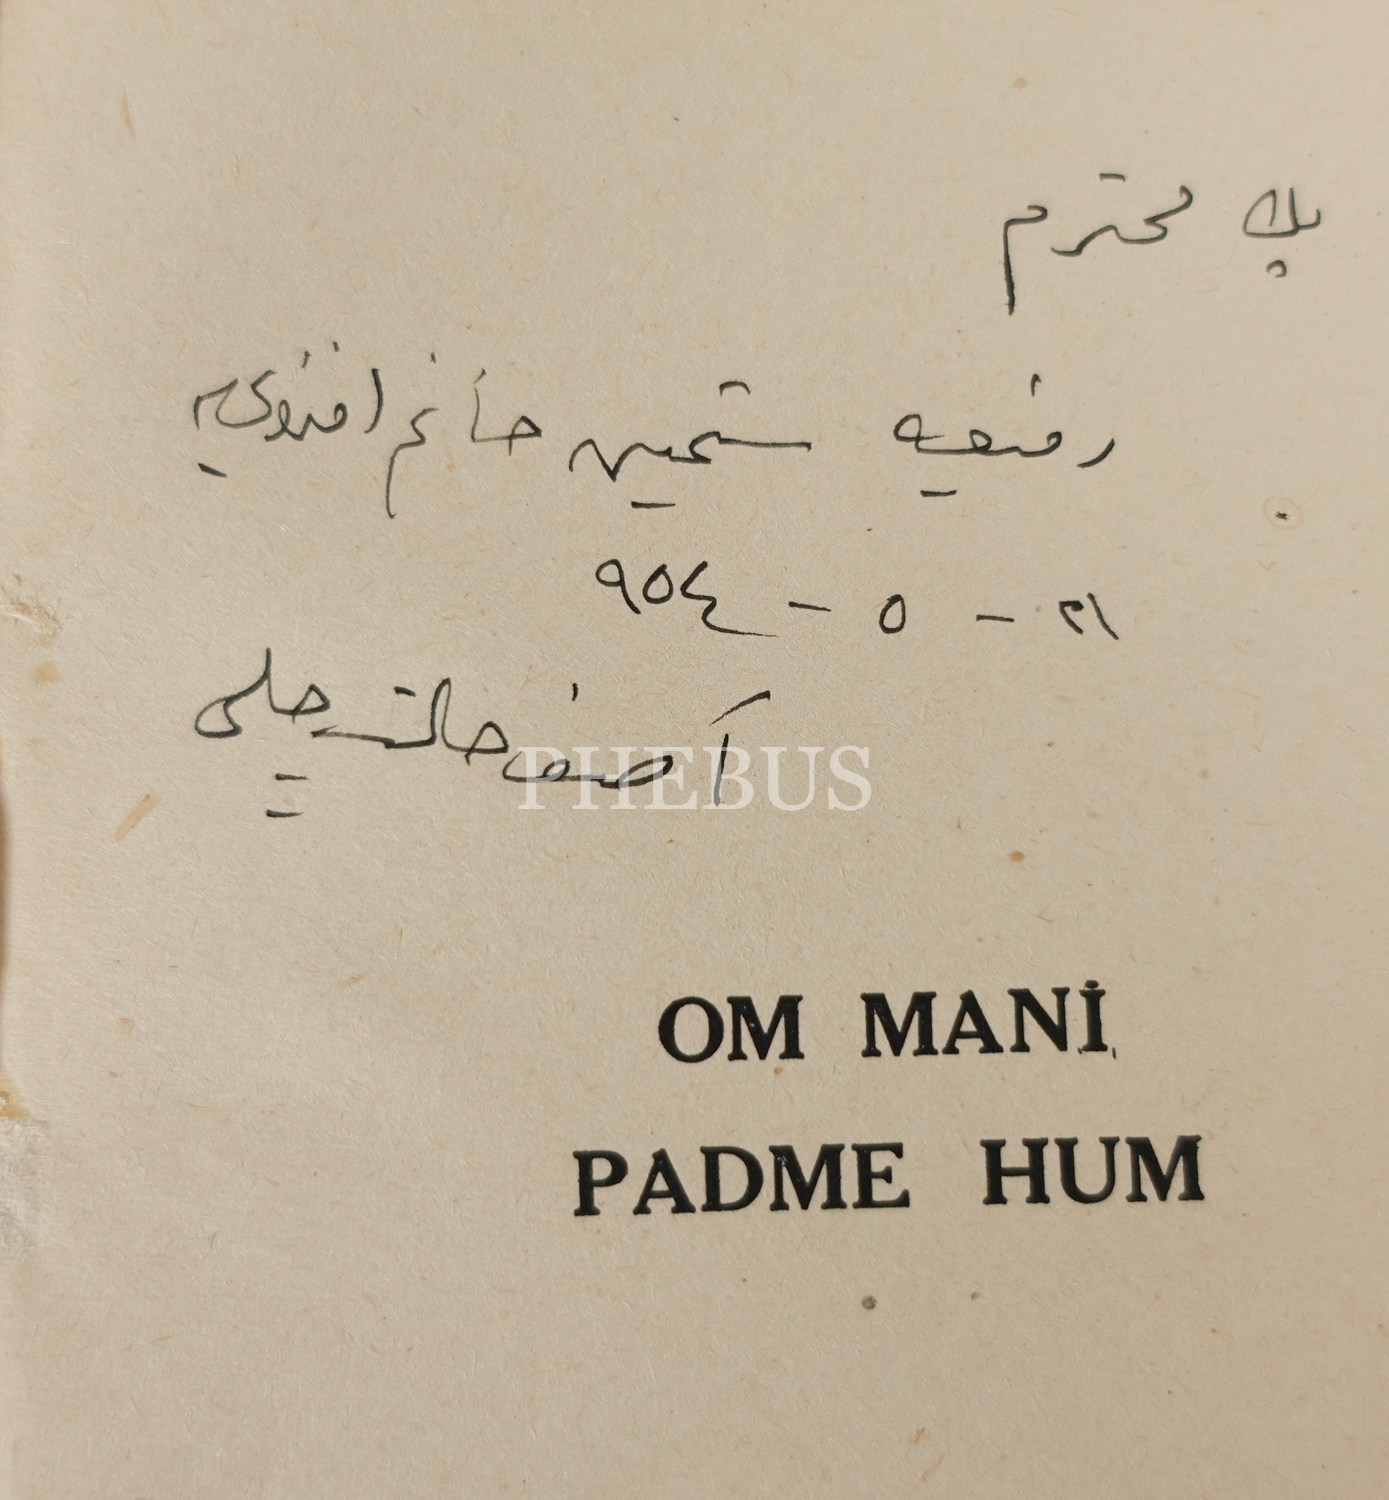 پك محترم
رفيعه شمين خانم افندی يه
٢١ - ٥ - ٩٥٤
آصف حالت چلبی
PHEBUS
OM MANİ
PADME HUM